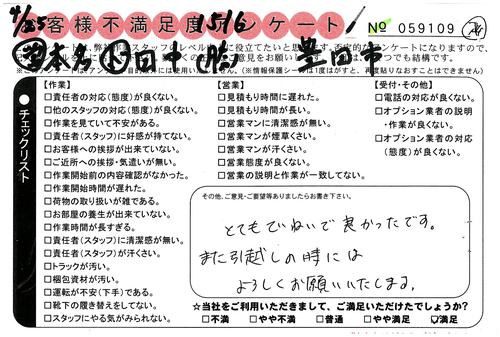 お客様不満足度アンケート!
№ 059109
豊田市
チェックリスト
【作業】
□責任者の対応(態度)が良くない。
□他のスタッフの対応(態度)が良くない。
□作業を見ていて不安がある。
□責任者(スタッフ)に好感が持てない。
□お客様への挨拶が出来ていない。
□ご近所への挨拶・気遣いが無い。
□作業開始前の内容確認がなかった。
□作業開始時間が遅れた。
□荷物の取り扱いが雑である。
□お部屋の養生が出来ていない。
□作業時間が長すぎる。
□責任者(スタッフ)に清潔感が無い。
□責任者(スタッフ)が汗くさい。
□トラックが汚い。
□梱包資材が汚い。
□運転が不安(下手)である。
□靴下の履き替えをしてない。
□スタッフにやる気がみられない。
【営業】
□見積もり時間に遅れた。
□見積もり時間が長い。
□営業マンに清潔感が無い。
□営業マンが煙草くさい。
□営業マンが汗くさい。
□営業態度が良くない。
□営業の説明と作業が一致してない。
【受付・その他】
□電話の対応が良くない。
□オプション業者の説明
・作業が良くない。
□オプション業者の対応
(態度)が良くない。
その他、ご意見・ご要望等ありましたらお書き下さい。
とてもていねいで良かったです。
また引越しの時には
よろしくお願いいたします。
☆当社をご利用いただきまして、ご満足いただけたでしょうか?
□不満 □やや不満 □普通 □やや満足 ☑満足